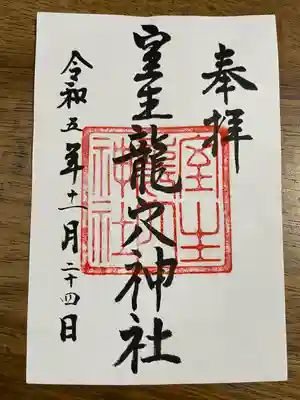 奉拝
室生龍穴神社
令和五年十一月二十四日
室生
龍穴
神社